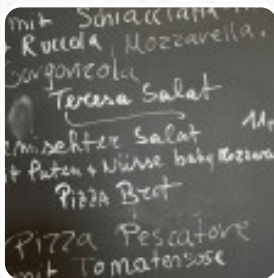 mit Schiacciata
+ Ruccola, Mozzarella.
Gorgonzola
Teresa Salat
emischter Salat 11,-
it Puten + Nüsse baby Mozzare
PiZZA Brot
PiZZA Pescatore
mit Tomatensose